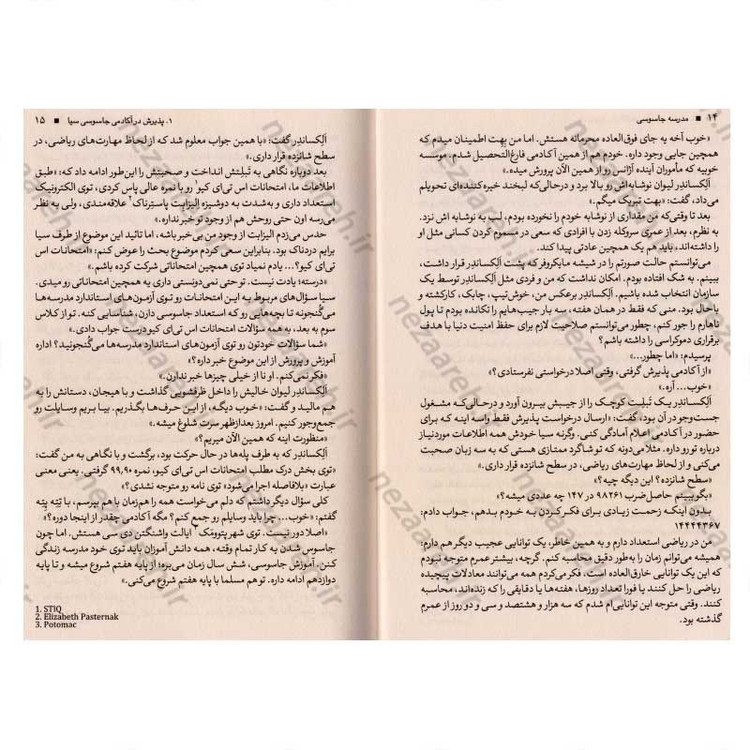 ۱۴ ■ مدرسه جاسوسی
«خوب آخه یه جای فوق‌العاده محرمانه هستش. اما من بهت اطمینان میدم که
همچین جایی وجود داره. خودم هم از همین آکادمی فارغ‌التحصیل شدم. موسسه
خوبیه که مأموران آینده آژانس رو از همین الآن پرورش میده.»
اَلِکساندِر لیوان نوشابه‌اش رو بالا برد و درحالی‌که لبخند خیره‌کننده‌ای تحویلم
می‌داد، گفت: «بهت تبریک میگم.»
بعد تا وقتی‌که من مقداری از نوشابه خودم را نخورده بودم، لب به نوشابه اش نزد.
به نظرم، بعد از عمری سروکله زدن با افرادی که سعی در مسموم کردن کسانی مثل او
را داشته‌اند، باید هم یک همچین عادتی پیدا کند.
می‌توانستم حالت صورتم را در شیشه مایکروفر که پشت اَلِکساندِر قرار داشت،
ببینم. به شک افتاده بودم. امکان نداشت که من و فردی مثل اَلِکساندِر توسط یک
سازمان انتخاب شده باشیم. اَلِکساندِر برعکس من، خوش‌تیپ، چابک، کارکشته و
باحال بود. منی که فقط در همان هفته، سه بار جیب‌هایم را تکانده بودم تا پول
ناهارم را جور کنم، چطور می‌توانستم صلاحیت لازم برای حفظ امنیت دنیا با هدف
برقراری دموکراسی را داشته باشم؟
پرسیدم: «اما چطور...»
«از آکادمی پذیرش گرفتی، وقتی اصلا درخواستی نفرستادی؟»
«خوب... آره.»
اَلِکساندِر یک تَبلِت کوچک را از جیبش بیرون آورد و درحالی‌که مشغول
جست‌وجو در آن بود، گفت: «ارسال درخواست پذیرش فقط واسه اینه که برای
حضور در آکادمی اعلام آمادگی کنی. وگرنه سیا خودش همه اطلاعات موردنیاز
درباره تورو داره. مثلاً می‌دونه که تو شاگرد ممتازی هستی که به سه زبان صحبت
می‌کنی و از لحاظ مهارت‌های ریاضی، در سطح شانزده قرار داری.»
«سطح شانزده؟ این دیگه چیه؟»
«بگو ببینم حاصل‌ضرب ۹۸۲۶۱ در ۱۴۷ چه عددی میشه؟»
بدون اینکه زحمت زیادی برای فکر کردن به خودم بدهم، جواب دادم:
۱۴۴۴۴۳۶۷
من در ریاضی استعداد دارم و به همین خاطر، یک توانایی عجیب دیگر هم دارم:
همیشه می‌توانم زمان را به‌طور دقیق محاسبه کنم. گرچه، بیشتر عمرم متوجه نبودم
که این یک توانایی خارق‌العاده است. فکر می‌کردم همه می‌توانند معادلات پیچیده
ریاضی را حل کنند یا فورا تعداد روزها، هفته‌ها یا دقایقی را که زنده‌اند، محاسبه
کنند. وقتی متوجه این توانایی‌ام شدم که سه هزار و هشتصد و سی و دو روز از عمرم
گذشته بود.
۱. پذیرش در آکادمی جاسوسی سیا ■ ۱۵
اَلِکساندِر گفت: «با همین جواب معلوم شد که از لحاظ مهارت‌های ریاضی، در
سطح شانزده قرار داری.»
بعد دوباره نگاهی به تَبلِتش انداخت و صحبتش را این‌طور ادامه داد که: «طبق
اطلاعات ما، امتحانات اس تی‌ای کیو¹ رو با نمره عالی پاس کردی، توی الکترونیک
استعداد داری و به‌شدت به دوشیزه اِلیزابِت پاسترناک² علاقه‌مندی. ولی به نظر
می‌رسه اون حتی روحش هم از وجود تو خبر نداره.»
حدس می‌زدم الیزابت از وجود من بی‌خبر باشه، اما تائید این موضوع از طرف سیا
برایم دردناک بود. بنابراین سعی کردم موضوع بحث را عوض کنم: «امتحانات اس
تی‌ای کیو؟... یادم نمیاد توی همچین امتحاناتی شرکت کرده باشم.»
«درسته؛ یادت نیست. تو حتی نمی‌دونستی داری یه همچین امتحاناتی رو میدی.
سیا سؤال‌های مربوط به این امتحانات رو توی آزمون‌های استاندارد مدرسه‌ها
می‌گُنجونه تا بچه‌هایی رو که استعداد جاسوسی دارن، شناسایی کنه. تو از کلاس
سوم به بعد، به همه سؤالات امتحانات اس تی‌ای کیو درست جواب دادی.»
«شما سؤالات خودتون رو توی آزمون‌های استاندارد مدرسه‌ها می‌گُنجونید؟ اداره
آموزش و پرورش از این موضوع خبر داره؟»
«فکر نمی‌کنم. او نا از خیلی چیزها خبر ندارن.»
اَلِکساندِر لیوان خالیش را داخل ظرفشویی گذاشت و با هیجان، دستانش را به
هم مالید و گفت: «خوب دیگه، از این حرف‌ها بگذریم. بیا بریم وسایلت رو
جمع‌وجور کنیم. امروز بعدازظهر سرت شلوغ میشه.»
«منظورت اینه که همین الآن میریم؟»
اَلِکساندِر که به طرف پله‌ها در حال حرکت بود، برگشت و نگاهی به من گفت:
«توی بخش درک مطلب امتحانات اس تی‌ای کیو، نمره ۹۹,۹۰ گرفتی. یعنی معنی
عبارت "بلافاصله اجرا می‌شود" توی نامه رو متوجه نشدی؟»
کلی سؤال دیگر داشتم که دلم می‌خواست همه را هم‌زمان با هم بپرسم. با تِته پِته
گفتم: «خوب... چرا باید وسایلم رو جمع کنم؟ مگه آکادمی چقدر از اینجا دوره؟»
«اصلا دور نیست. توی شهر پتومَک³ ایالت واشنگتن دی سی هستش. اما چون
جاسوس شدن یه کار تمام وقته، همه دانش آموزان باید توی خود مدرسه زندگی
کنن. آموزش جاسوسی، شش سال زمان می‌بره؛ از پایه هفتم شروع میشه و تا پایه
دوازدهم ادامه داره. تو هم مسلما با پایه هفتم شروع می‌کنی.»
1. STIQ
2. Elizabeth Pasternak
3. Potomac
nezaareh.ir